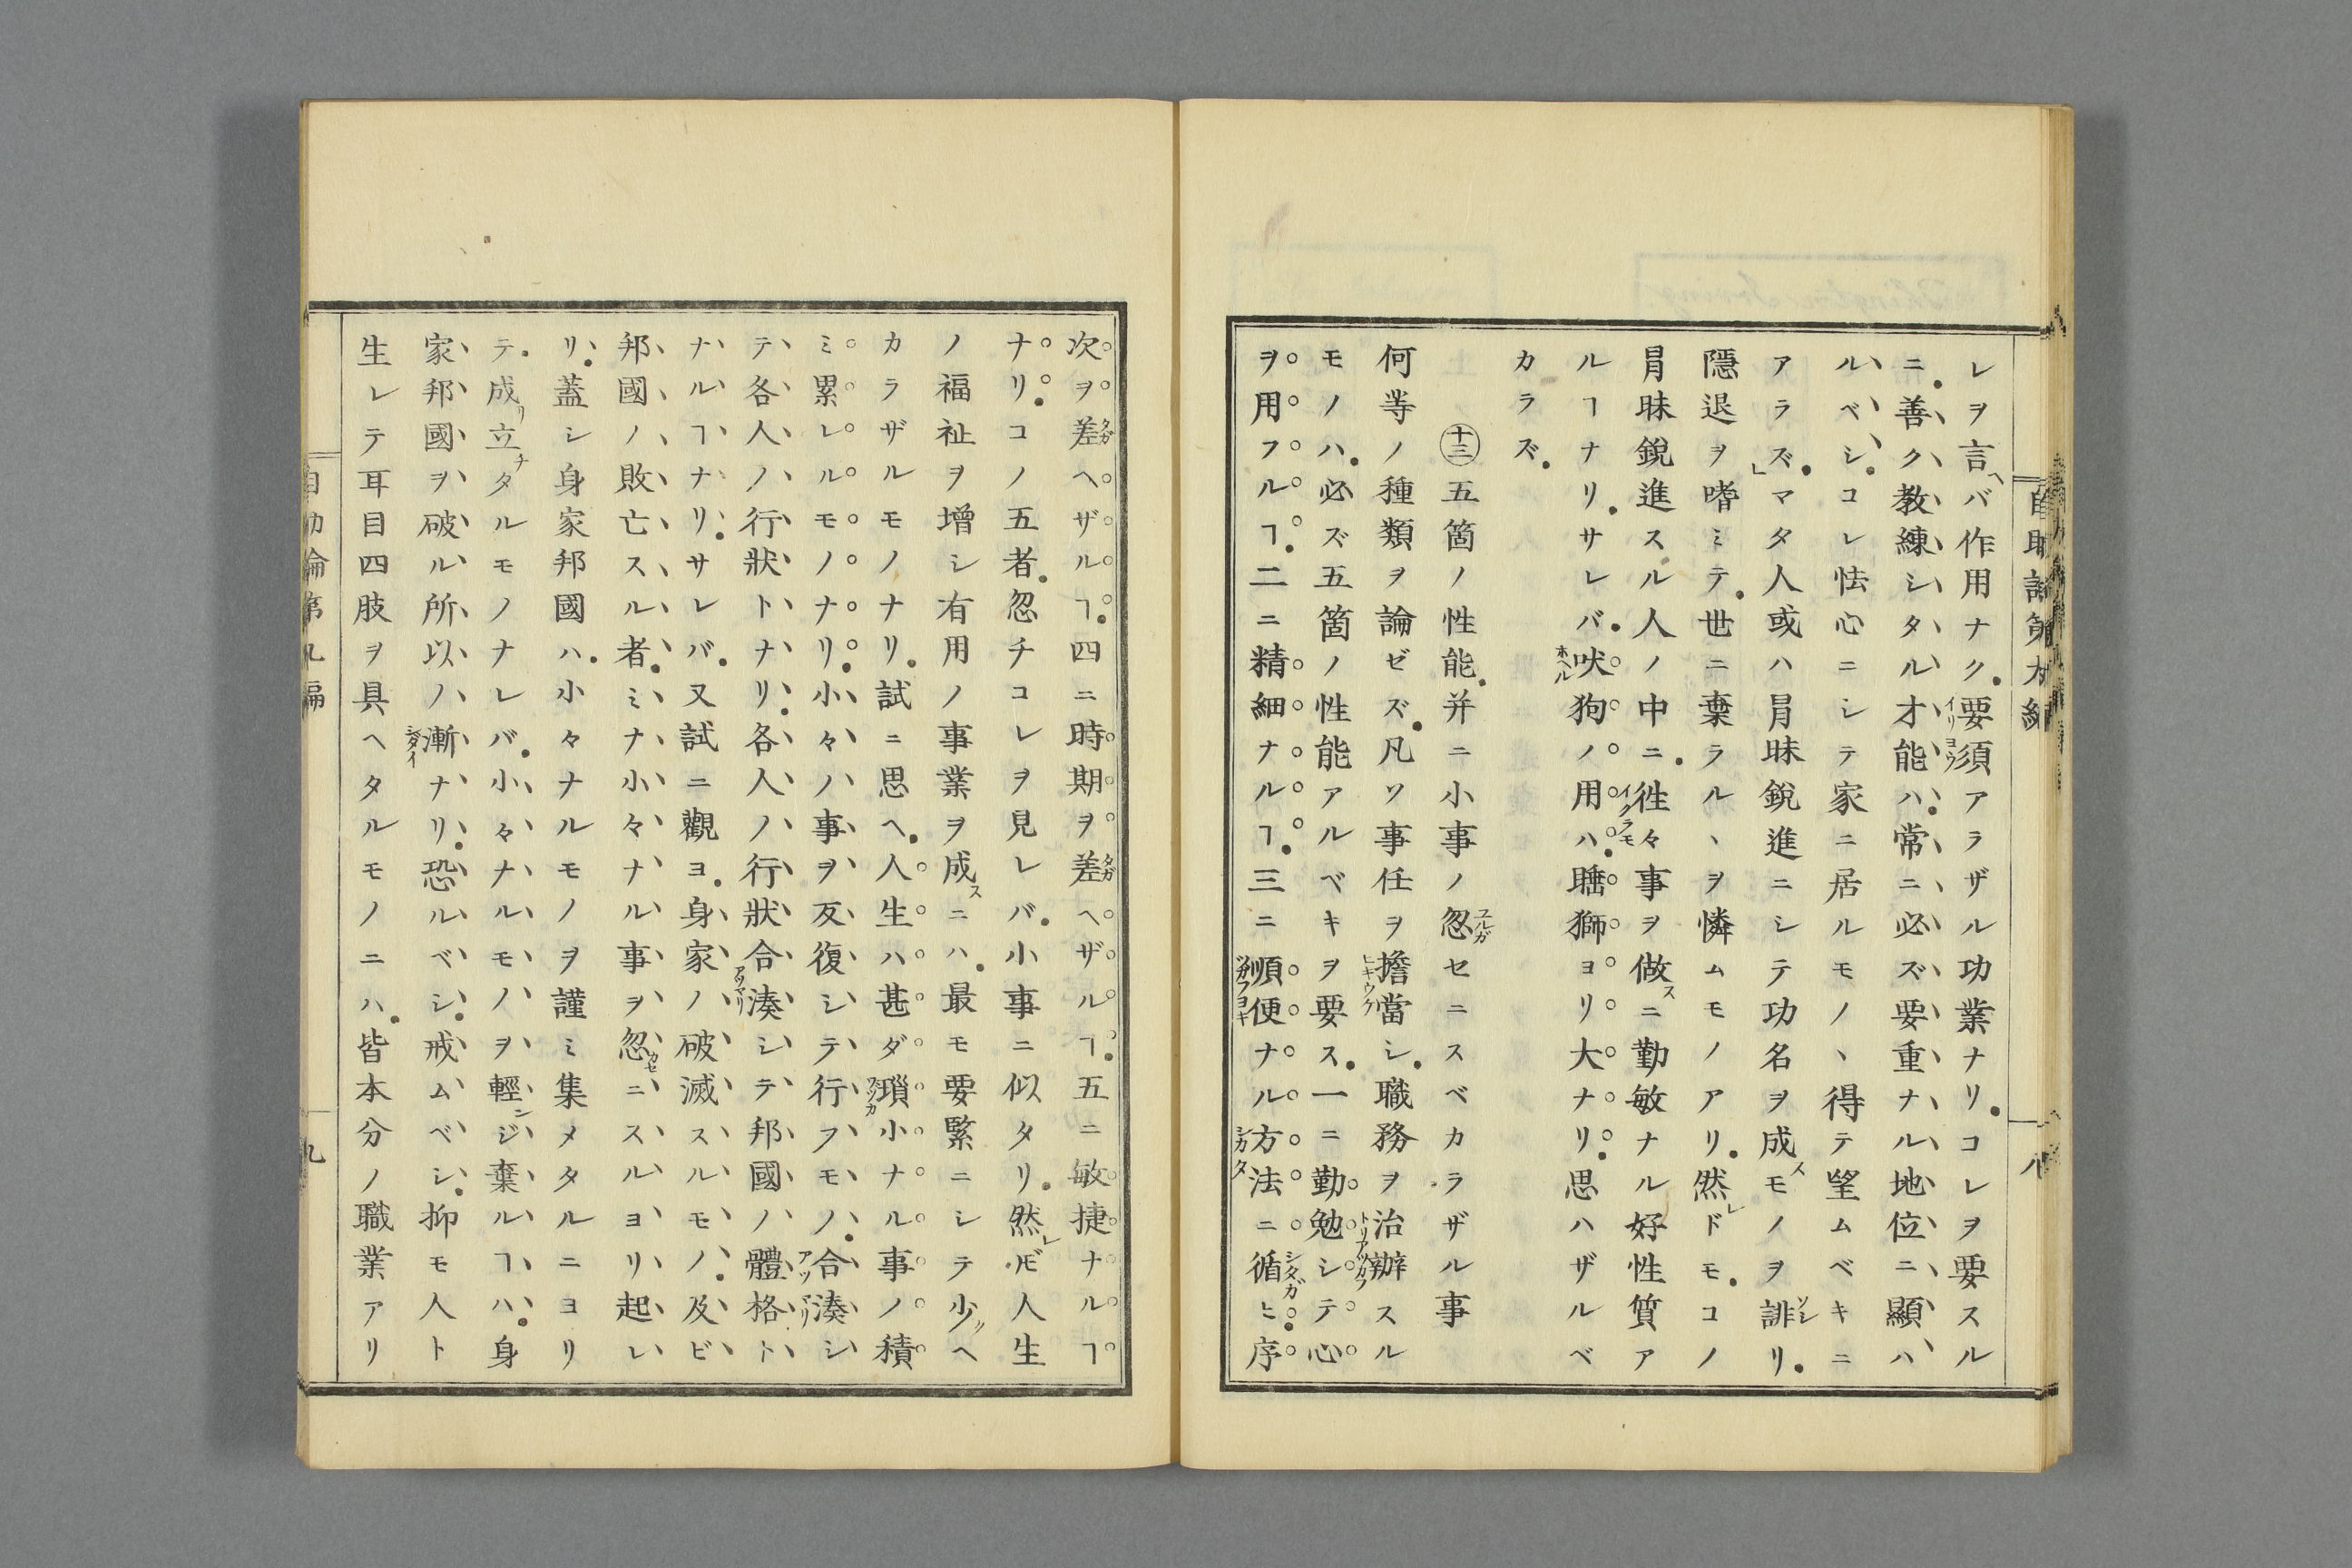 レヲ言ヘバ作用ナク要須アラザル功業ナリコレヲ要スル
ニ善ク教練シタル才能ハ常ニ必ズ要重ナル地位ニ顯ハ
ルベシコレ怯心ニシテ家ニ居ルモノヽ得テ望ムベキニ
アラズ」マタ人或ハ冐昧鋭進ニシテ功名ヲ成スモノヲ誹リ
隱退ヲ嗜ミテ世ニ棄ラルヽヲ憐ムモノアリ然レドモコノ
冐昧鋭進スル人ノ中ニ徃々事ヲ做スニ勤敏ナル好性質ア
ルヿナリサレバ吠狗ノ用ハ睡獅ヨリ大ナリ思ハザルベ
カラズ
㊉三 五箇ノ性能并ニ小事ノ忽セニスベカラザル事
何等ノ種類ヲ論ゼズ凡ソ事任ヲ擔當シ職務ヲ治辦スル
モノハ必ズ五箇ノ性能アルベキヲ要ス一ニ勤勉シテ心
ヲ用フルヿ二ニ精細ナルヿ三ニ順便ナル方法ニ循ヒ序
次ヲ差ヘザルヿ四ニ時期ヲ差ヘザルヿ五ニ敏捷ナルヿ
ナリコノ五者忽チコレヲ見レバ小事ニ似タリ然レ𪜈人生
ノ福祉ヲ增シ有用ノ事業ヲ成スニハ最モ要緊ニシテ少ヘ
カラザルモノナリ試ニ思ヘ人生ハ甚ダ瑣小ナル事ノ積
ミ累レルモノナリ小々ノ事ヲ反復シテ行フモノ合湊シ
テ各人ノ行狀トナリ各人ノ行狀合湊シテ邦國ノ體格ト
ナルヿナリサレバ又試ニ觀ヨ身家ノ破滅スルモノ及ビ
邦國ノ敗亡スル者ミナ小々ナル事ヲ忽セニスルヨリ起レ
リ蓋シ身家邦國ハ小々ナルモノヲ謹ミ集メタルニヨリ
テ成リ立チタルモノナレバ小々ナルモノヲ輕ンジ棄ルヿハ身
家邦國ヲ破ル所以ノ漸ナリ恐ルベシ戒ムベシ抑モ人ト
生レテ耳目四肢ヲ具ヘタルモノニハ皆本分ノ職業アリ
自助論第九編
九